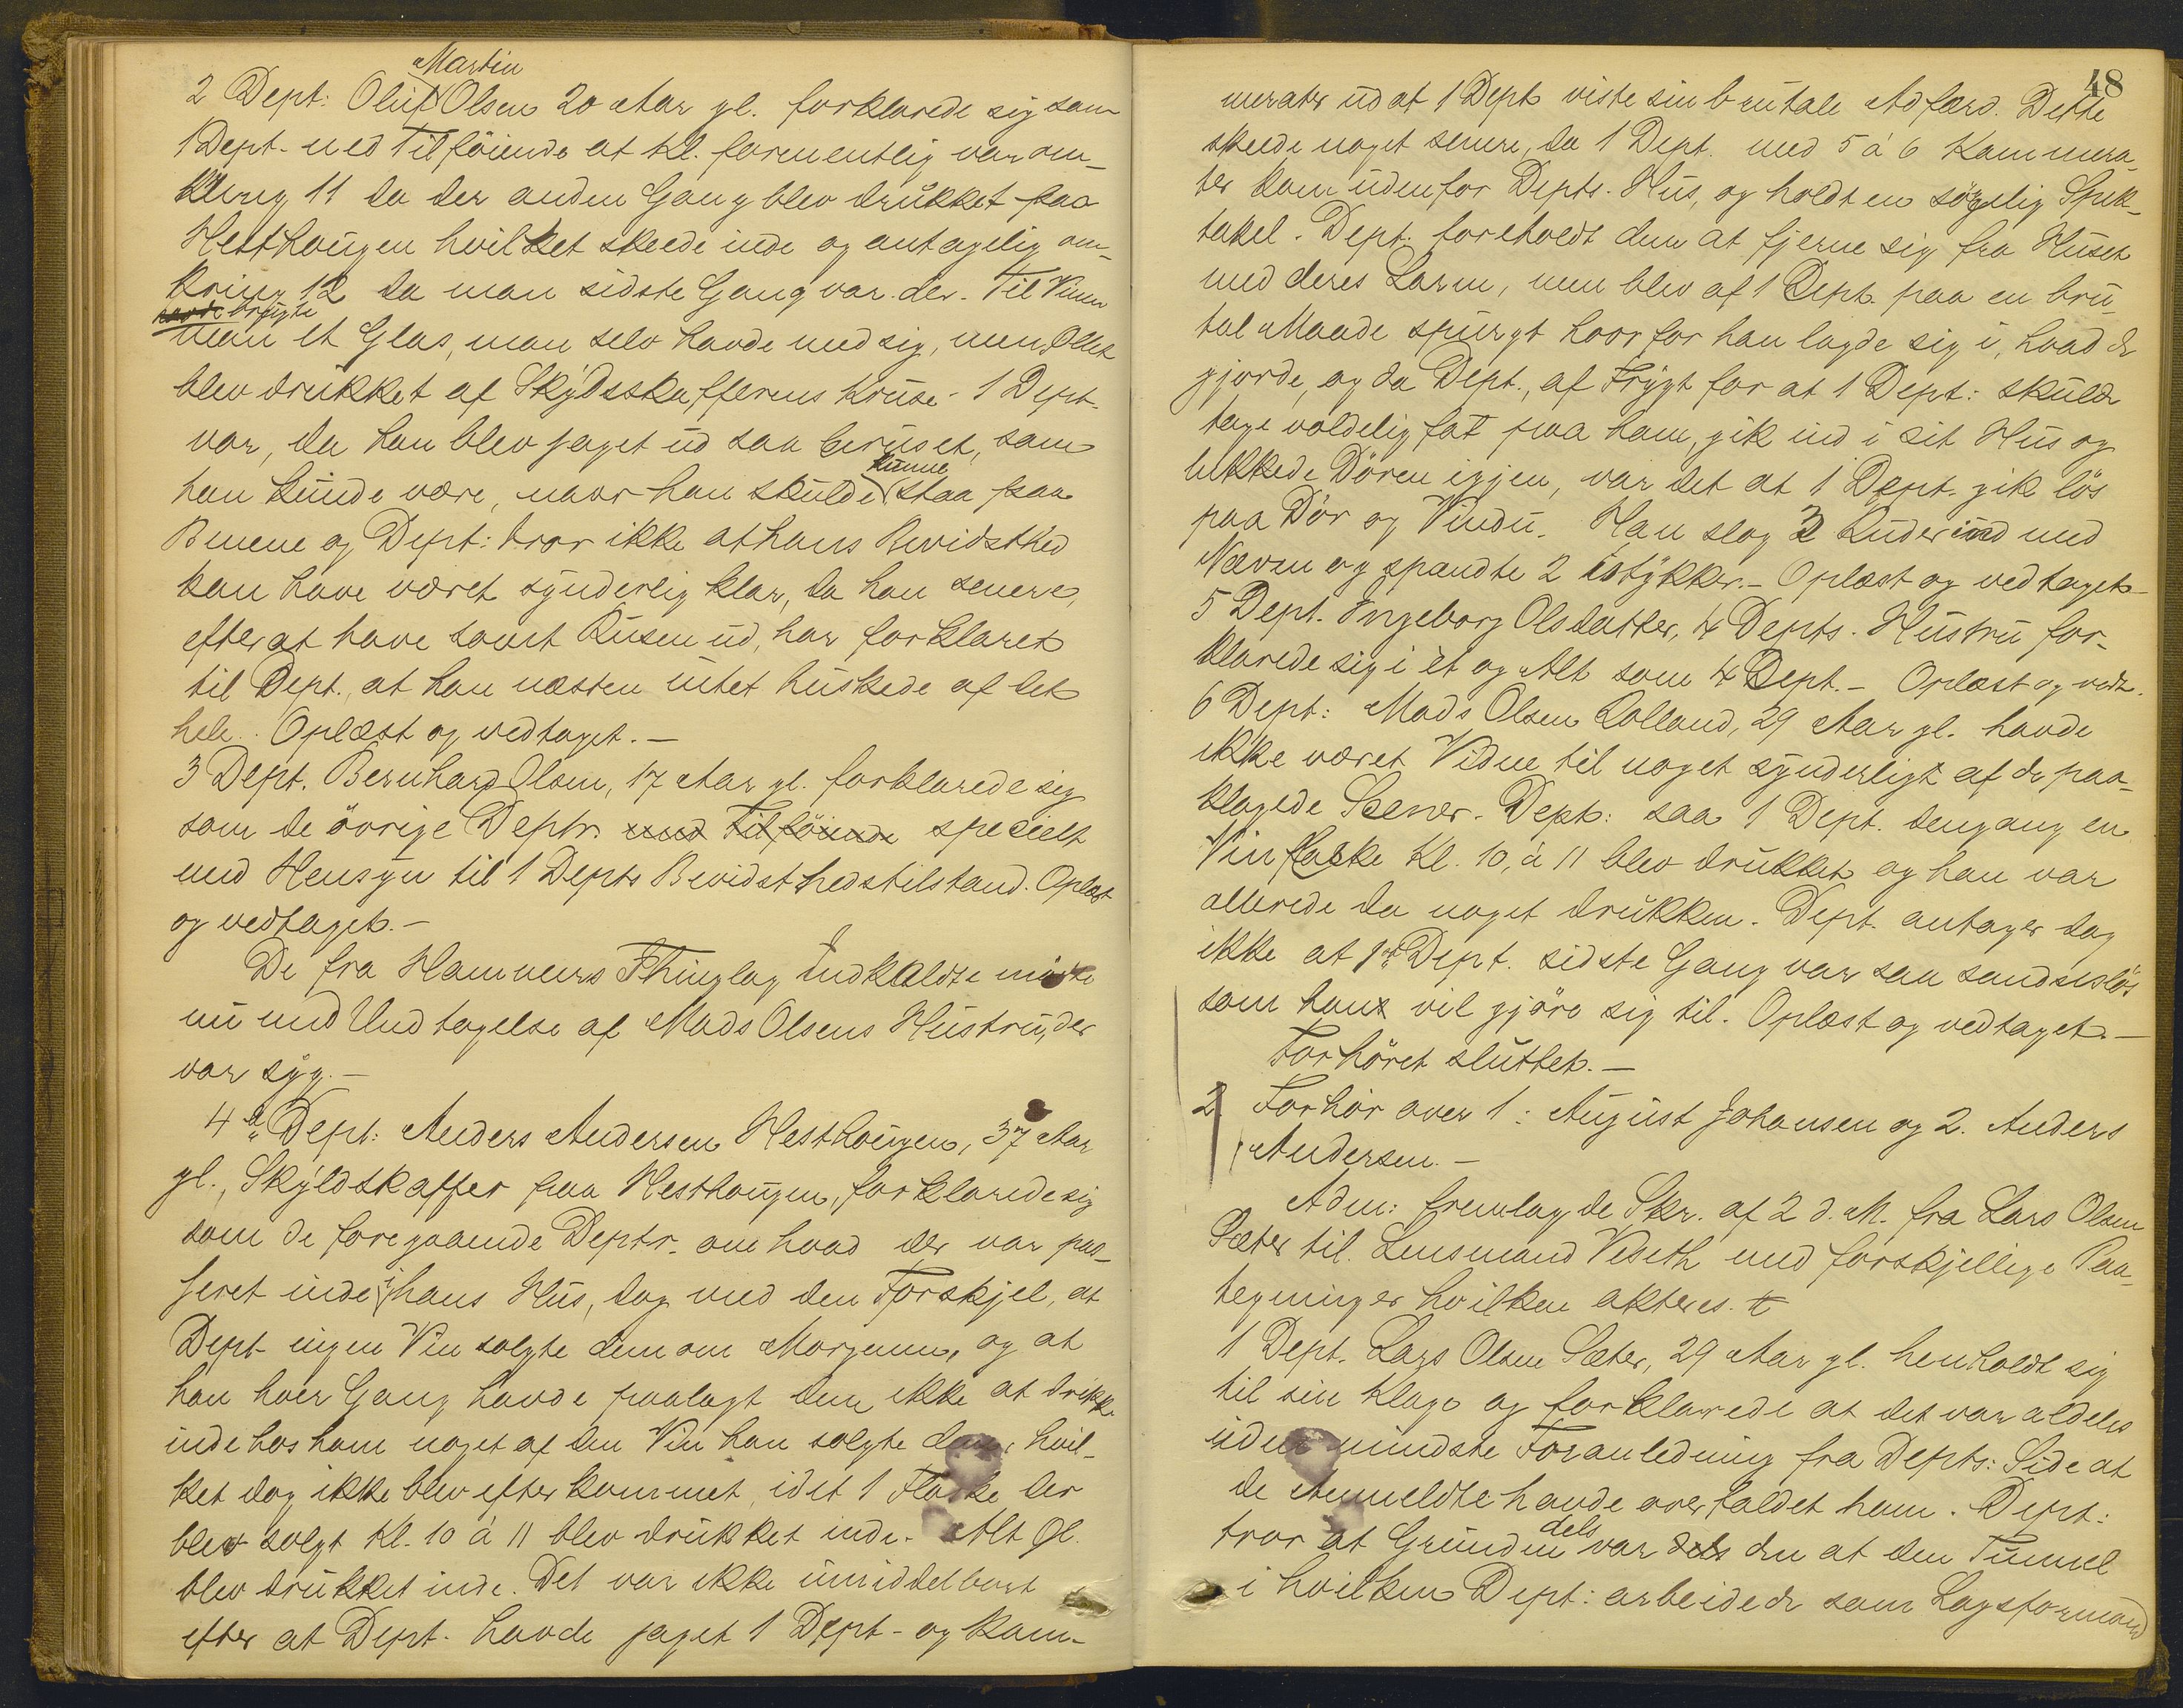 Martin
2 Dept: Oluf Olsen 20 Aar gl. forklarede sig som
1 Dept. med Tilföiende at Kl. formentlig var om-
kring 11 da der anden Gang blev drukket paa
Hesthougen hvilket skeede inde og antagelig om-
kring 12 da man sidste Gang var der. Til Vinen
havde brugte
man et Glas, man selv havde med sig, men Øllet
blev drukket af Skydsskafferens Kruse. 1 Dept.
var, da han blev jaget ud saa beruset, som
kunne
han kunde være, naar han skulde staa paa
Benene og Dept: tror ikke at hans Bevidsthed
kan have været synderlig klar, da han senere,
efter at have sovet Rusen ud, har forklaret
til Dept., at han næsten intet huskede af det
hele. Oplæst og vedtaget. —
3 Dept. Bernhard Olsen, 17 Aar gl. forklarede sig
som de övrige Deptr. med Tilföiende specielt
med Hensyn til 1 Depts Bevidsthedstilstand. Oplæst
og vedtaget. —
De fra Hammers Thinglag Indkaldte mødte
nu med Undtagelse af Mads Olsens Hustru, der
var syg. —
4de Dept: Anders Andersen Hesthougen, 37 Aar
gl., Skydskaffer paa Hesthougen, forklarede sig
som de foregaaende Deptr. om hvad der var pas-
seret inde i hans Hus, dog med den Forskjel, at
Dept. ingen Vin solgte dem om Morgenen, og at
han hver Gang havde paalagt dem ikke at drikke
inde hos ham noget af den Vin han solgte dem, hvil-
ket dog ikke blev efterkommet, idet 1 Flaske der
blev solgt Kl. 10 à 11 blev drukket inde. Alt Øl
blev drukket inde. Det var ikke umiddelbart
efter at Dept. havde jaget 1 Dept. og Kam-
48
merater ud at 1 Dept viste sin brutale Adfærd. Dette
skeede noget senere, da 1 Dept. med 5 à 6 Kammera-
ter kom udenfor Depts. Hus, og holdt en sörgelig Spek-
takel. Dept. foreholdt dem at fjerne sig fra Huset
med deres Larm, men blev af 1 Dept. paa en bru-
tal Maade spurgt hvorfor han lagde sig i, hvad de
gjorde, og da Dept., af Frygt for at 1 Dept: skulde
tage voldelig fat paa ham, gik ind i sit Hus og
lukkede Dören igjen, var det at 1 Dept. gik lös
paa Dör og Vindu. Han slog 2 Ruder ind med
Næven og spændte 2 istykker. — Oplæst og vedtaget. —
5 Dept. Ingeborg Olsdatter, 4 Depts. Hustru for-
klarede sig i èt og Alt som 4 Dept. — Oplæst og vedt.
6 Dept: Mads Olsen Lolland, 29 Aar gl. havde
ikke været Vidne til noget synderligt af de paa-
klagede Scener. Dept: saa 1 Dept. dengang en
Vinflaske Kl. 10 à 11 blev drukket og han var
allerede da noget drukken. Dept. antager dog
ikke at 1ste Dept. sidste Gang var saa sandseslös
som han vil gjöre sig til. Oplæst og vedtaget. —
Forhöret sluttet. —
2 Forhör over 1: August Johansen og 2. Anders
Andersen. —
Adm: fremlagde Skr. af 2 d. M. fra Lars Olsen
Sæter til Lensmand Veseth med forskjellige Paa-
tegninger hvilken akteres.
1 Dept. Lars Olsen Sæter, 29 Aar gl. henholdt sig
til sin Klage og forklarede at det var aldeles
uden mindste Foranledning fra Depts: Side at
de Anmeldte havde overfaldet ham. Dept:
dels
tror at Grunden var dels den at den Tunnel
i hvilken Dept: arbeidede som Lagsformand